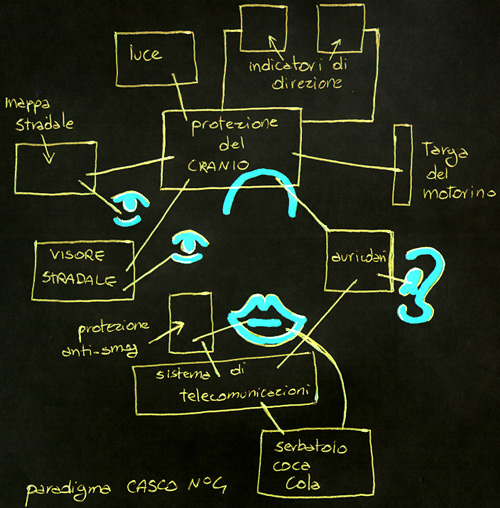 luce
indicatori di
direzione
mappa
stradale
protezione
del
CRANIO
Targa
del
motorino
VISORE
STRADALE
auricolari
protezione
anti-smog
sistema di
telecomunicazioni
serbatoio
coca
cola
paradigma CASCO N°4